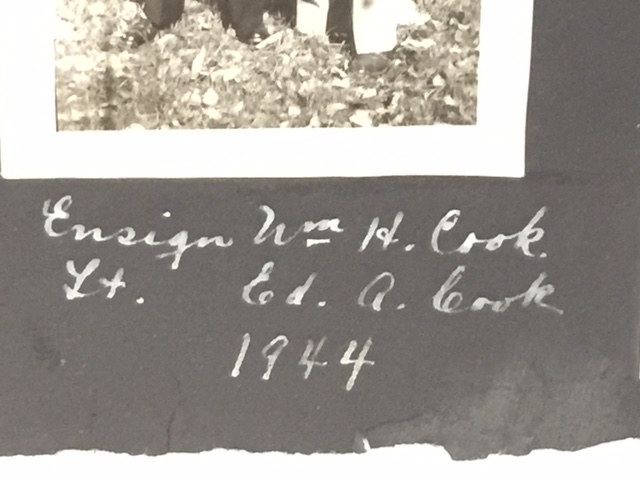 Ensign Wm H. Cook.
Lt. Ed. A. Cook
1944